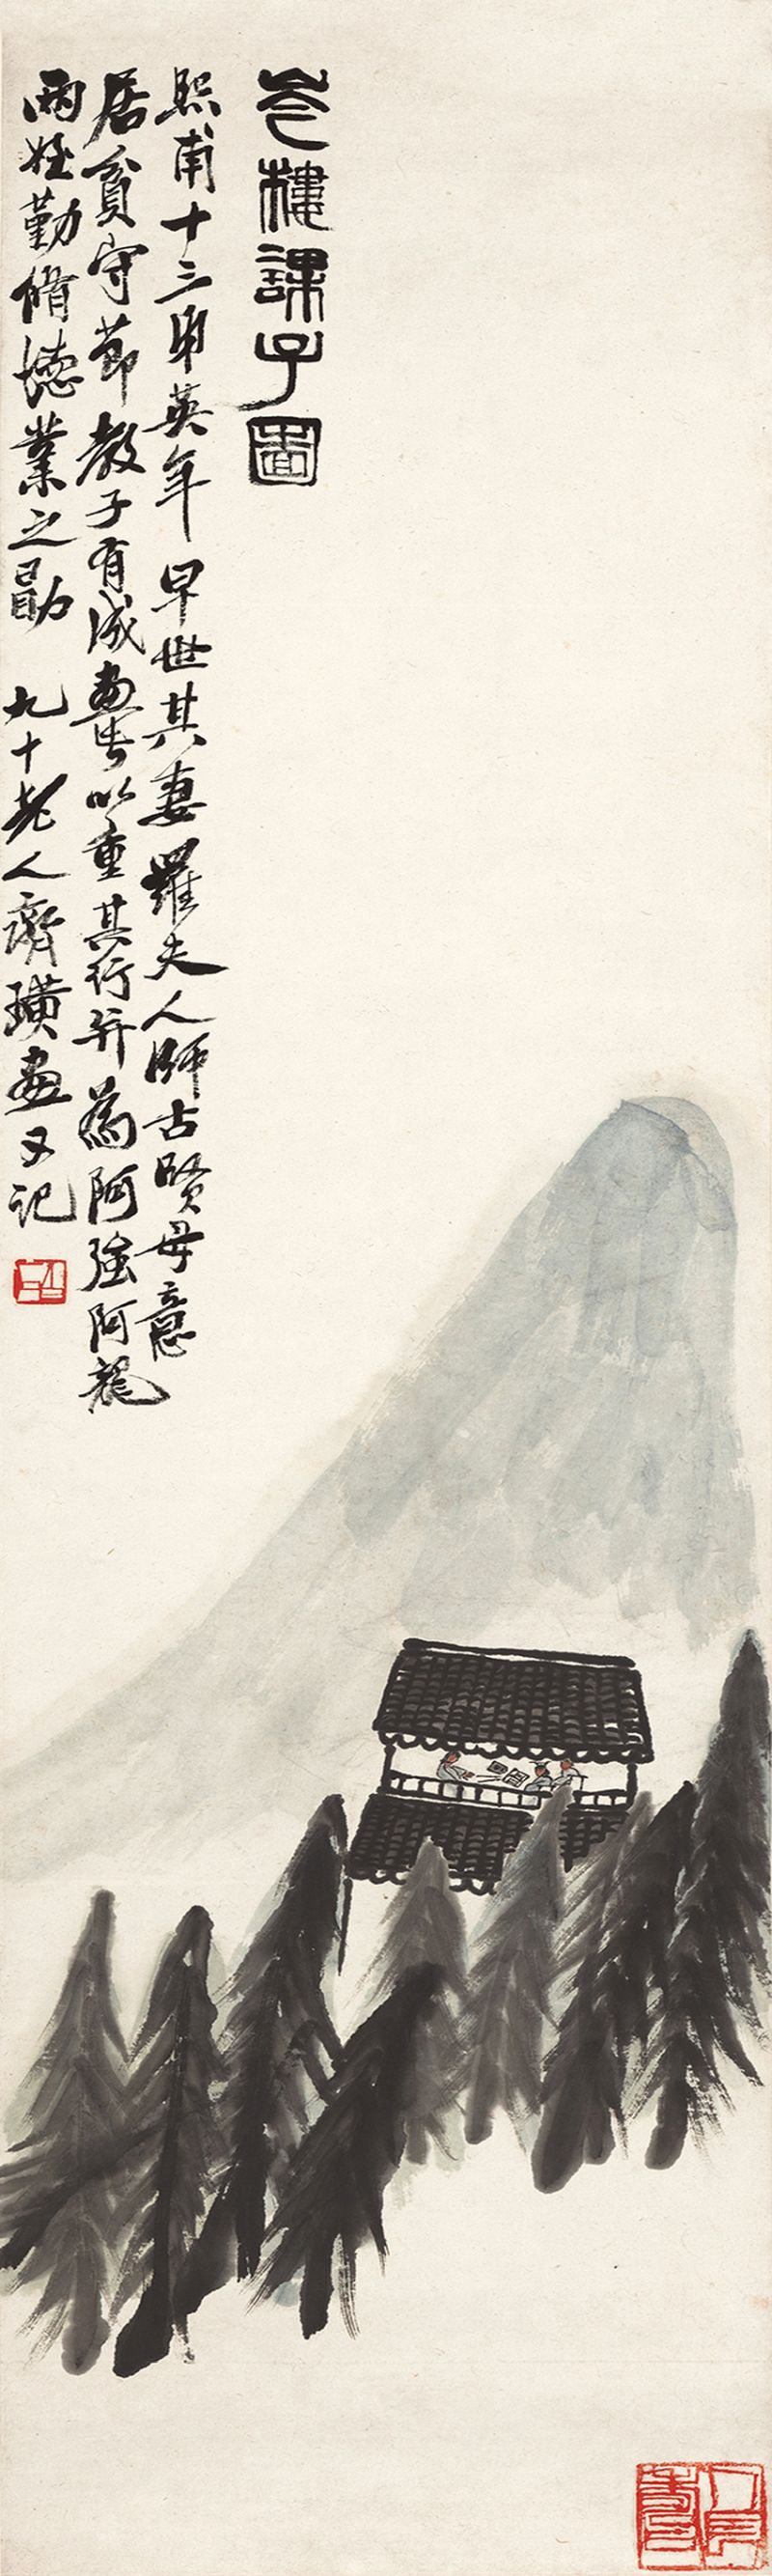 岑樓課子圖
熙甫十三弟英年早世其妻羅夫人師古賢母意
居貧守節教子有成畫此以重其行并為阿強阿龍
兩姪勤脩德業之勗 九十老人齊璜畫又記
白石